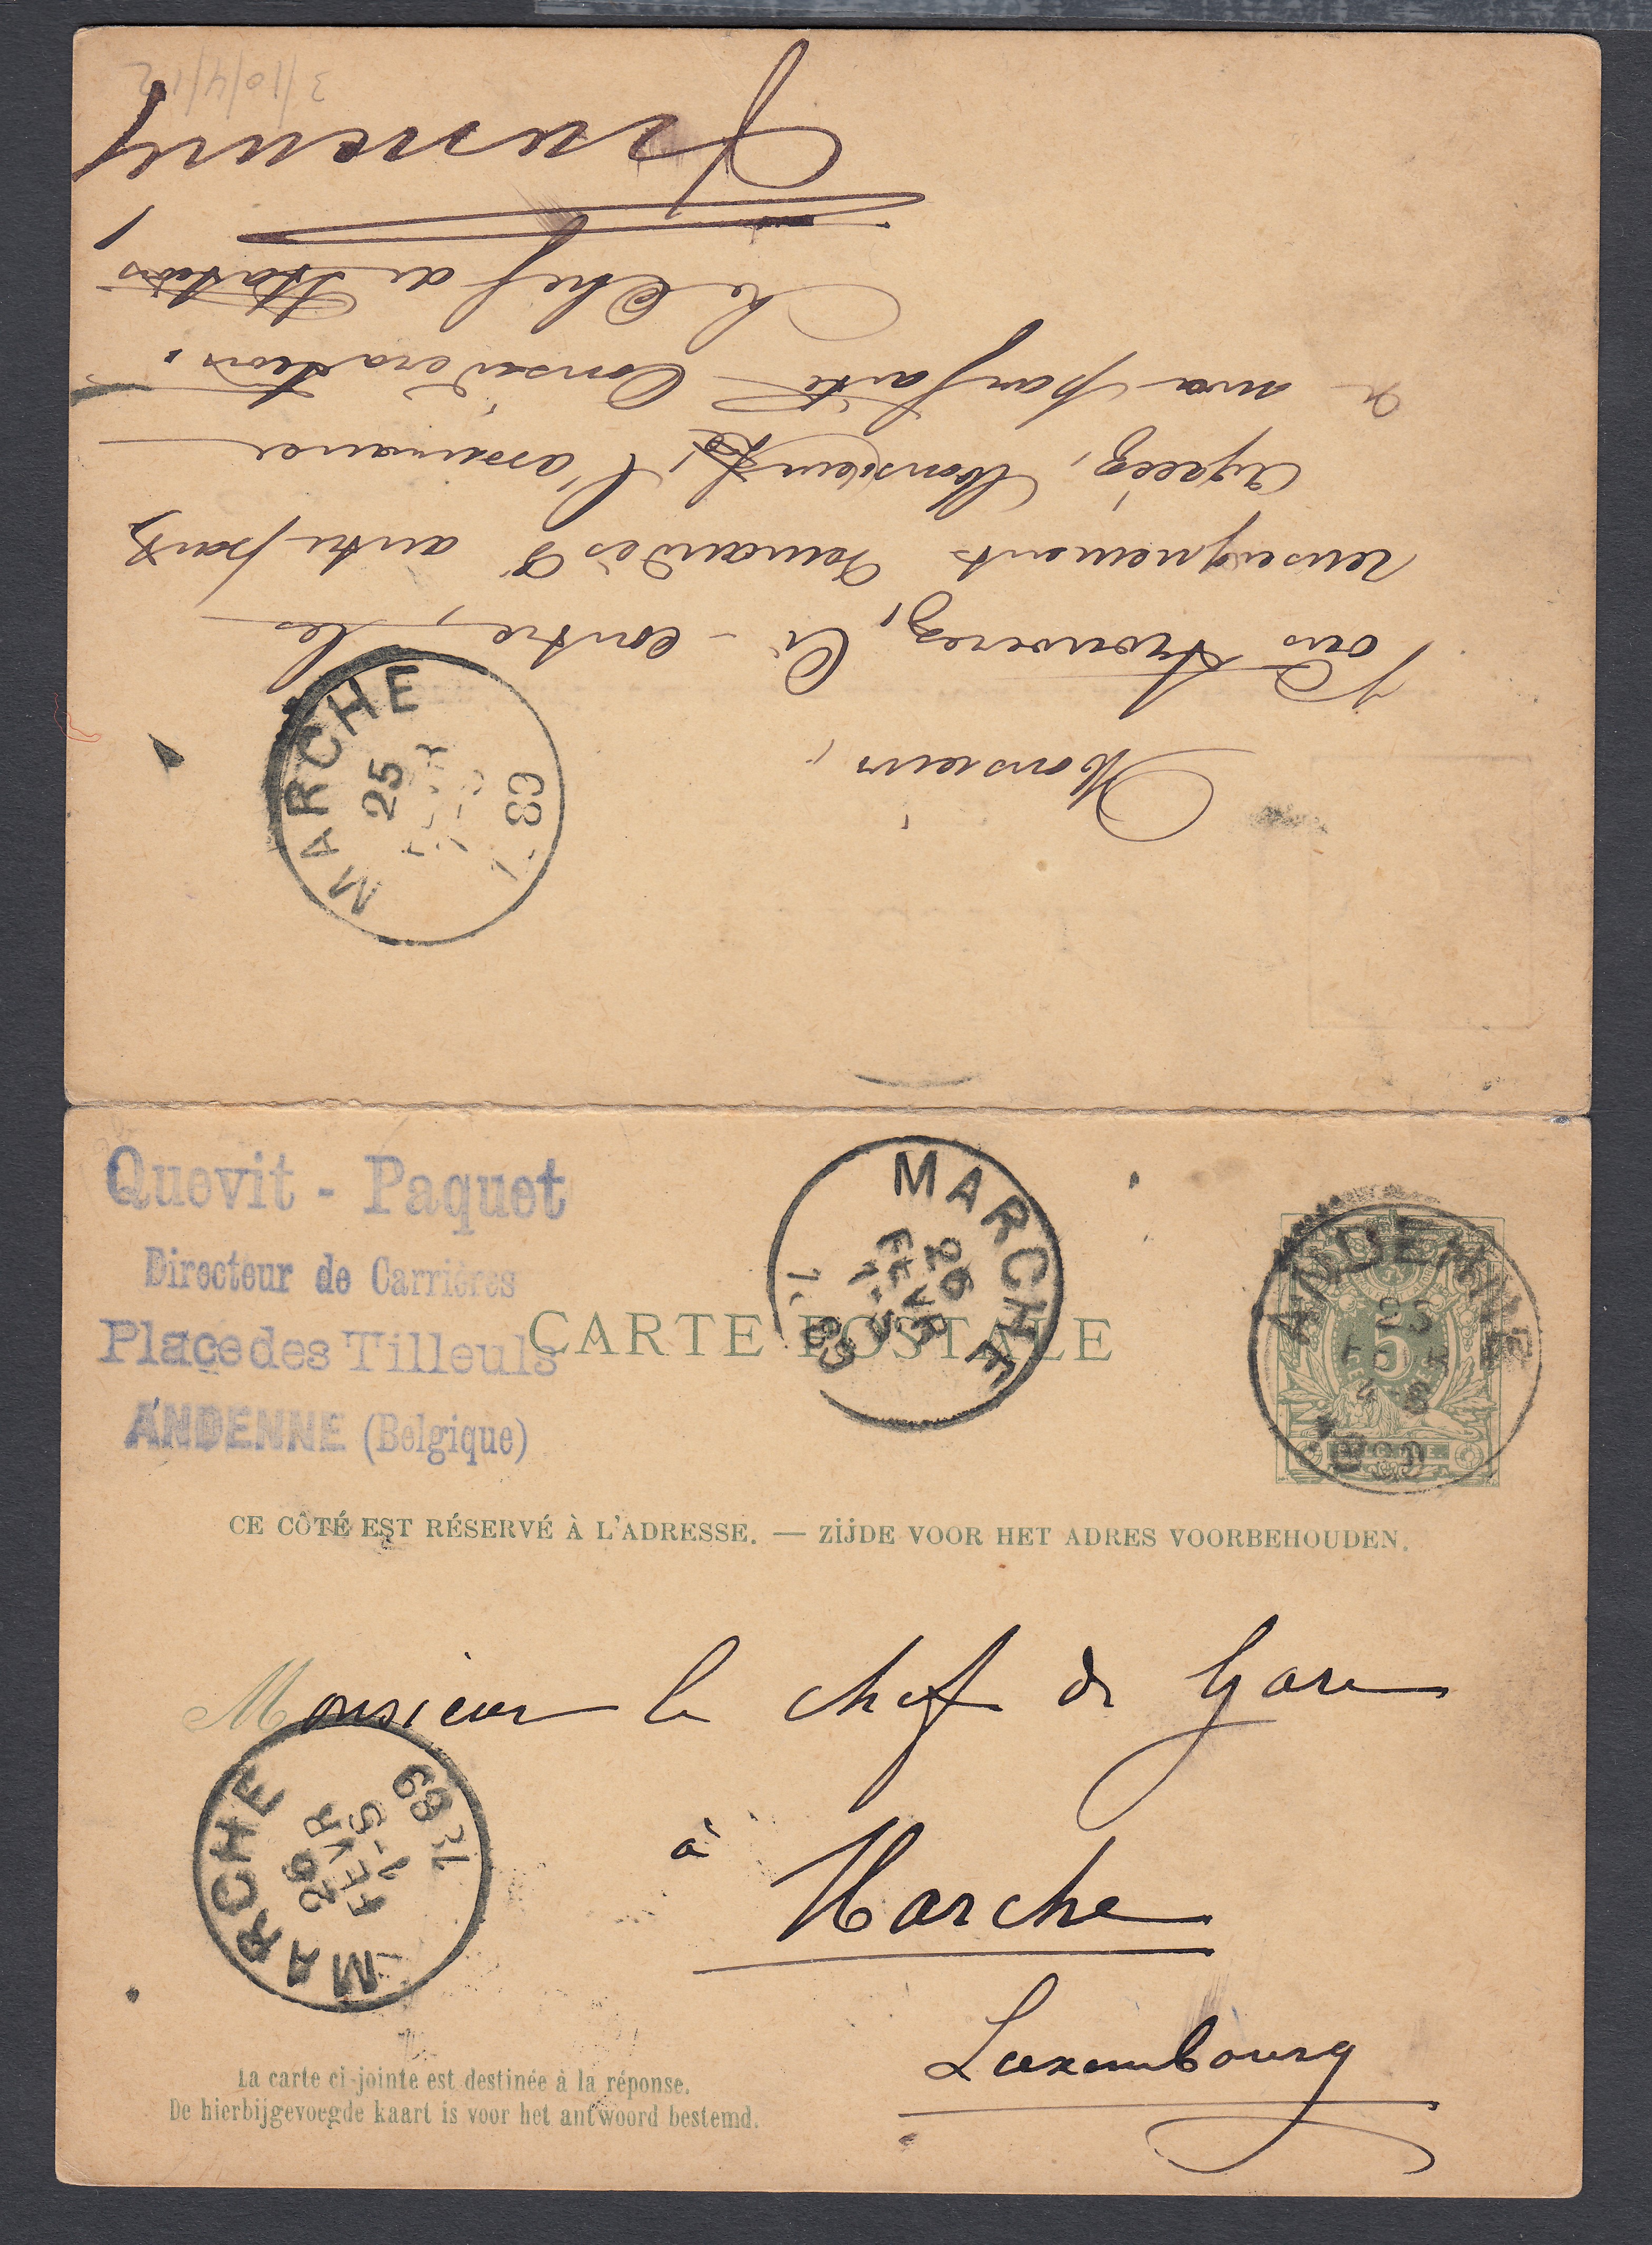 3/10/4/12
Monsieur,
Vous trouverez, ci-contre, les
renseignements demandés d'autre part,
Agréez, Monsieur, l'assurance
de ma parfaite Considération.
Le Chef de Station
MARCHE
25
1 89
Quevit - Paquet
Directeur de Carrières
Place des Tilleuls
ANDENNE (Belgique)
MARCHE
26
FEVR
1-S
1 89
CARTE POSTALE
ANDENNE
25
4-S
5
CE CÔTÉ EST RÉSERVÉ À L'ADRESSE. — ZIJDE VOOR HET ADRES VOORBEHOUDEN.
Monsieur le chef de Gare
à
Marche
Luxembourg
MARCHE
26
FEVR
1-S
1889
La carte ci-jointe est destinée à la réponse.
De hierbijgevoegde kaart is voor het antwoord bestemd.